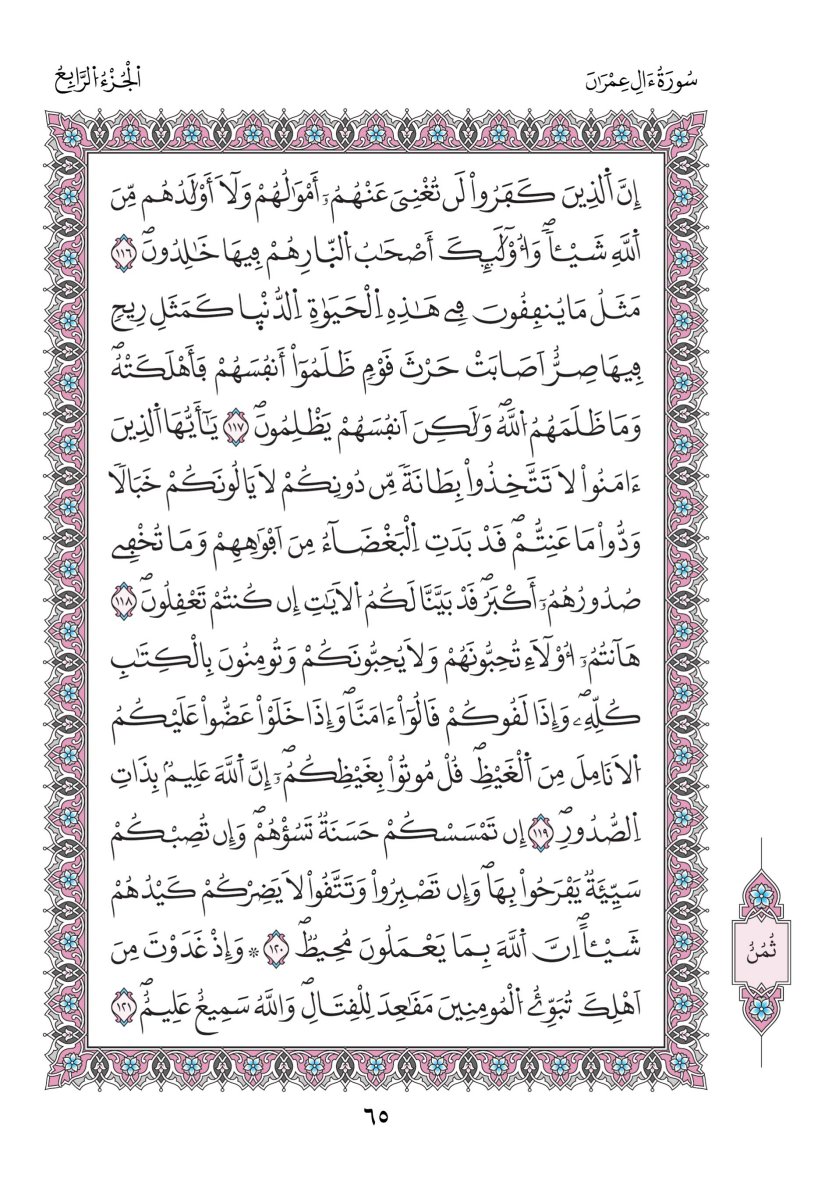 سُورَةُ ءَالِ عِمْرَٰنَ
اَ۬لْجُزْءُ اُ۬لرَّابِعُ
إِنَّ اَ۬لذِينَ كَفَرُواْ لَن تُغْنِيَ عَنْهُمُۥٓ أَمْوَٰلُهُمْ وَلَآ أَوْلَٰدُهُم مِّنَ
اَ۬للَّهِ شَيْـٔاٗۖ وَأُوْلَٰٓئِكَ أَصْحَٰبُ اُ۬لنّ۪ارِ هُمْ فِيهَا خَٰلِدُونَۖ ١١٦
مَثَلُ مَا يُنفِقُونَ فِے هَٰذِهِ اِ۬لْحَيَوٰةِ اِ۬لدُّنْي۪ا كَمَثَلِ رِيحٖ
فِيهَا صِرٌّ اَصَابَتْ حَرْثَ قَوْمٖ ظَلَمُوٓاْ أَنفُسَهُمْ فَأَهْلَكَتْهُۖ
وَمَا ظَلَمَهُمُ اُ۬للَّهُۖ وَلَٰكِنَ اَنفُسَهُمْ يَظْلِمُونَۖ ١١٧ يَٰٓأَيُّهَا اَ۬لذِينَ
ءَامَنُواْ لَا تَتَّخِذُواْ بِطَانَةٗ مِّن دُونِكُمْ لَا يَالُونَكُمْ خَبَالٗا
وَدُّواْ مَا عَنِتُّمْۖ قَدْ بَدَتِ اِ۬لْبَغْضَآءُ مِنَ اَفْوَٰهِهِمْ وَمَا تُخْفِے
صُدُورُهُمُۥٓ أَكْبَرُۖ قَدْ بَيَّنَّا لَكُمُ اُ۬لَايَٰتِ إِن كُنتُمْ تَعْقِلُونَۖ ١١٨
هَآنتُمُۥٓ أُوْلَآءِ تُحِبُّونَهُمْ وَلَا يُحِبُّونَكُمْ وَتُومِنُونَ بِالْكِتَٰبِ
كُلِّهِۦۖ وَإِذَا لَقُوكُمْ قَالُوٓاْ ءَامَنَّاۖ وَإِذَا خَلَوْاْ عَضُّواْ عَلَيْكُمُ
اُ۬لَانَامِلَ مِنَ اَ۬لْغَيْظِۖ قُلْ مُوتُواْ بِغَيْظِكُمُۥٓۖ إِنَّ اَ۬للَّهَ عَلِيمُۢ بِذَاتِ
اِ۬لصُّدُورِۖ ١١٩ إِن تَمْسَسْكُمْ حَسَنَةٞ تَسُؤْهُمْۖ وَإِن تُصِبْكُمْ
سَيِّئَةٞ يَفْرَحُواْ بِهَاۖ وَإِن تَصْبِرُواْ وَتَتَّقُواْ لَا يَضِرْكُمْ كَيْدُهُمْ
شَيْـٔاًۖ اِنَّ اَ۬للَّهَ بِمَا يَعْمَلُونَ مُحِيطٞۖ ١٢٠ ۞ وَإِذْ غَدَوْتَ مِنَ
اَهْلِكَ تُبَوِّئُ اُ۬لْمُومِنِينَ مَقَٰعِدَ لِلْقِتَالِۖ وَاللَّهُ سَمِيعٌ عَلِيمٌۖ ١٢١
ثُمُنُ
٦٥